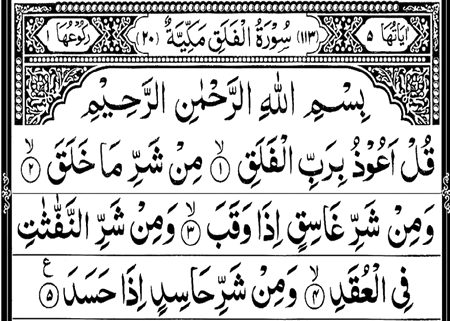 اٰيَاتُهَا ٥ (١١٣) سُوْرَةُ الْفَلَقِ مَكِّيَّةٌ (٢٠) رُكُوْعُهَا ١
بِسْمِ اللهِ الرَّحْمٰنِ الرَّحِيْمِ
قُلْ اَعُوْذُ بِرَبِّ الْفَلَقِ ۙ﴿١﴾ مِنْ شَرِّ مَا خَلَقَ ۙ﴿٢﴾
وَمِنْ شَرِّ غَاسِقٍ اِذَا وَقَبَ ۙ﴿٣﴾ وَمِنْ شَرِّ النَّفّٰثٰتِ
فِى الْعُقَدِ ۙ﴿٤﴾ وَمِنْ شَرِّ حَاسِدٍ اِذَا حَسَدَ ﴿٥﴾ ع